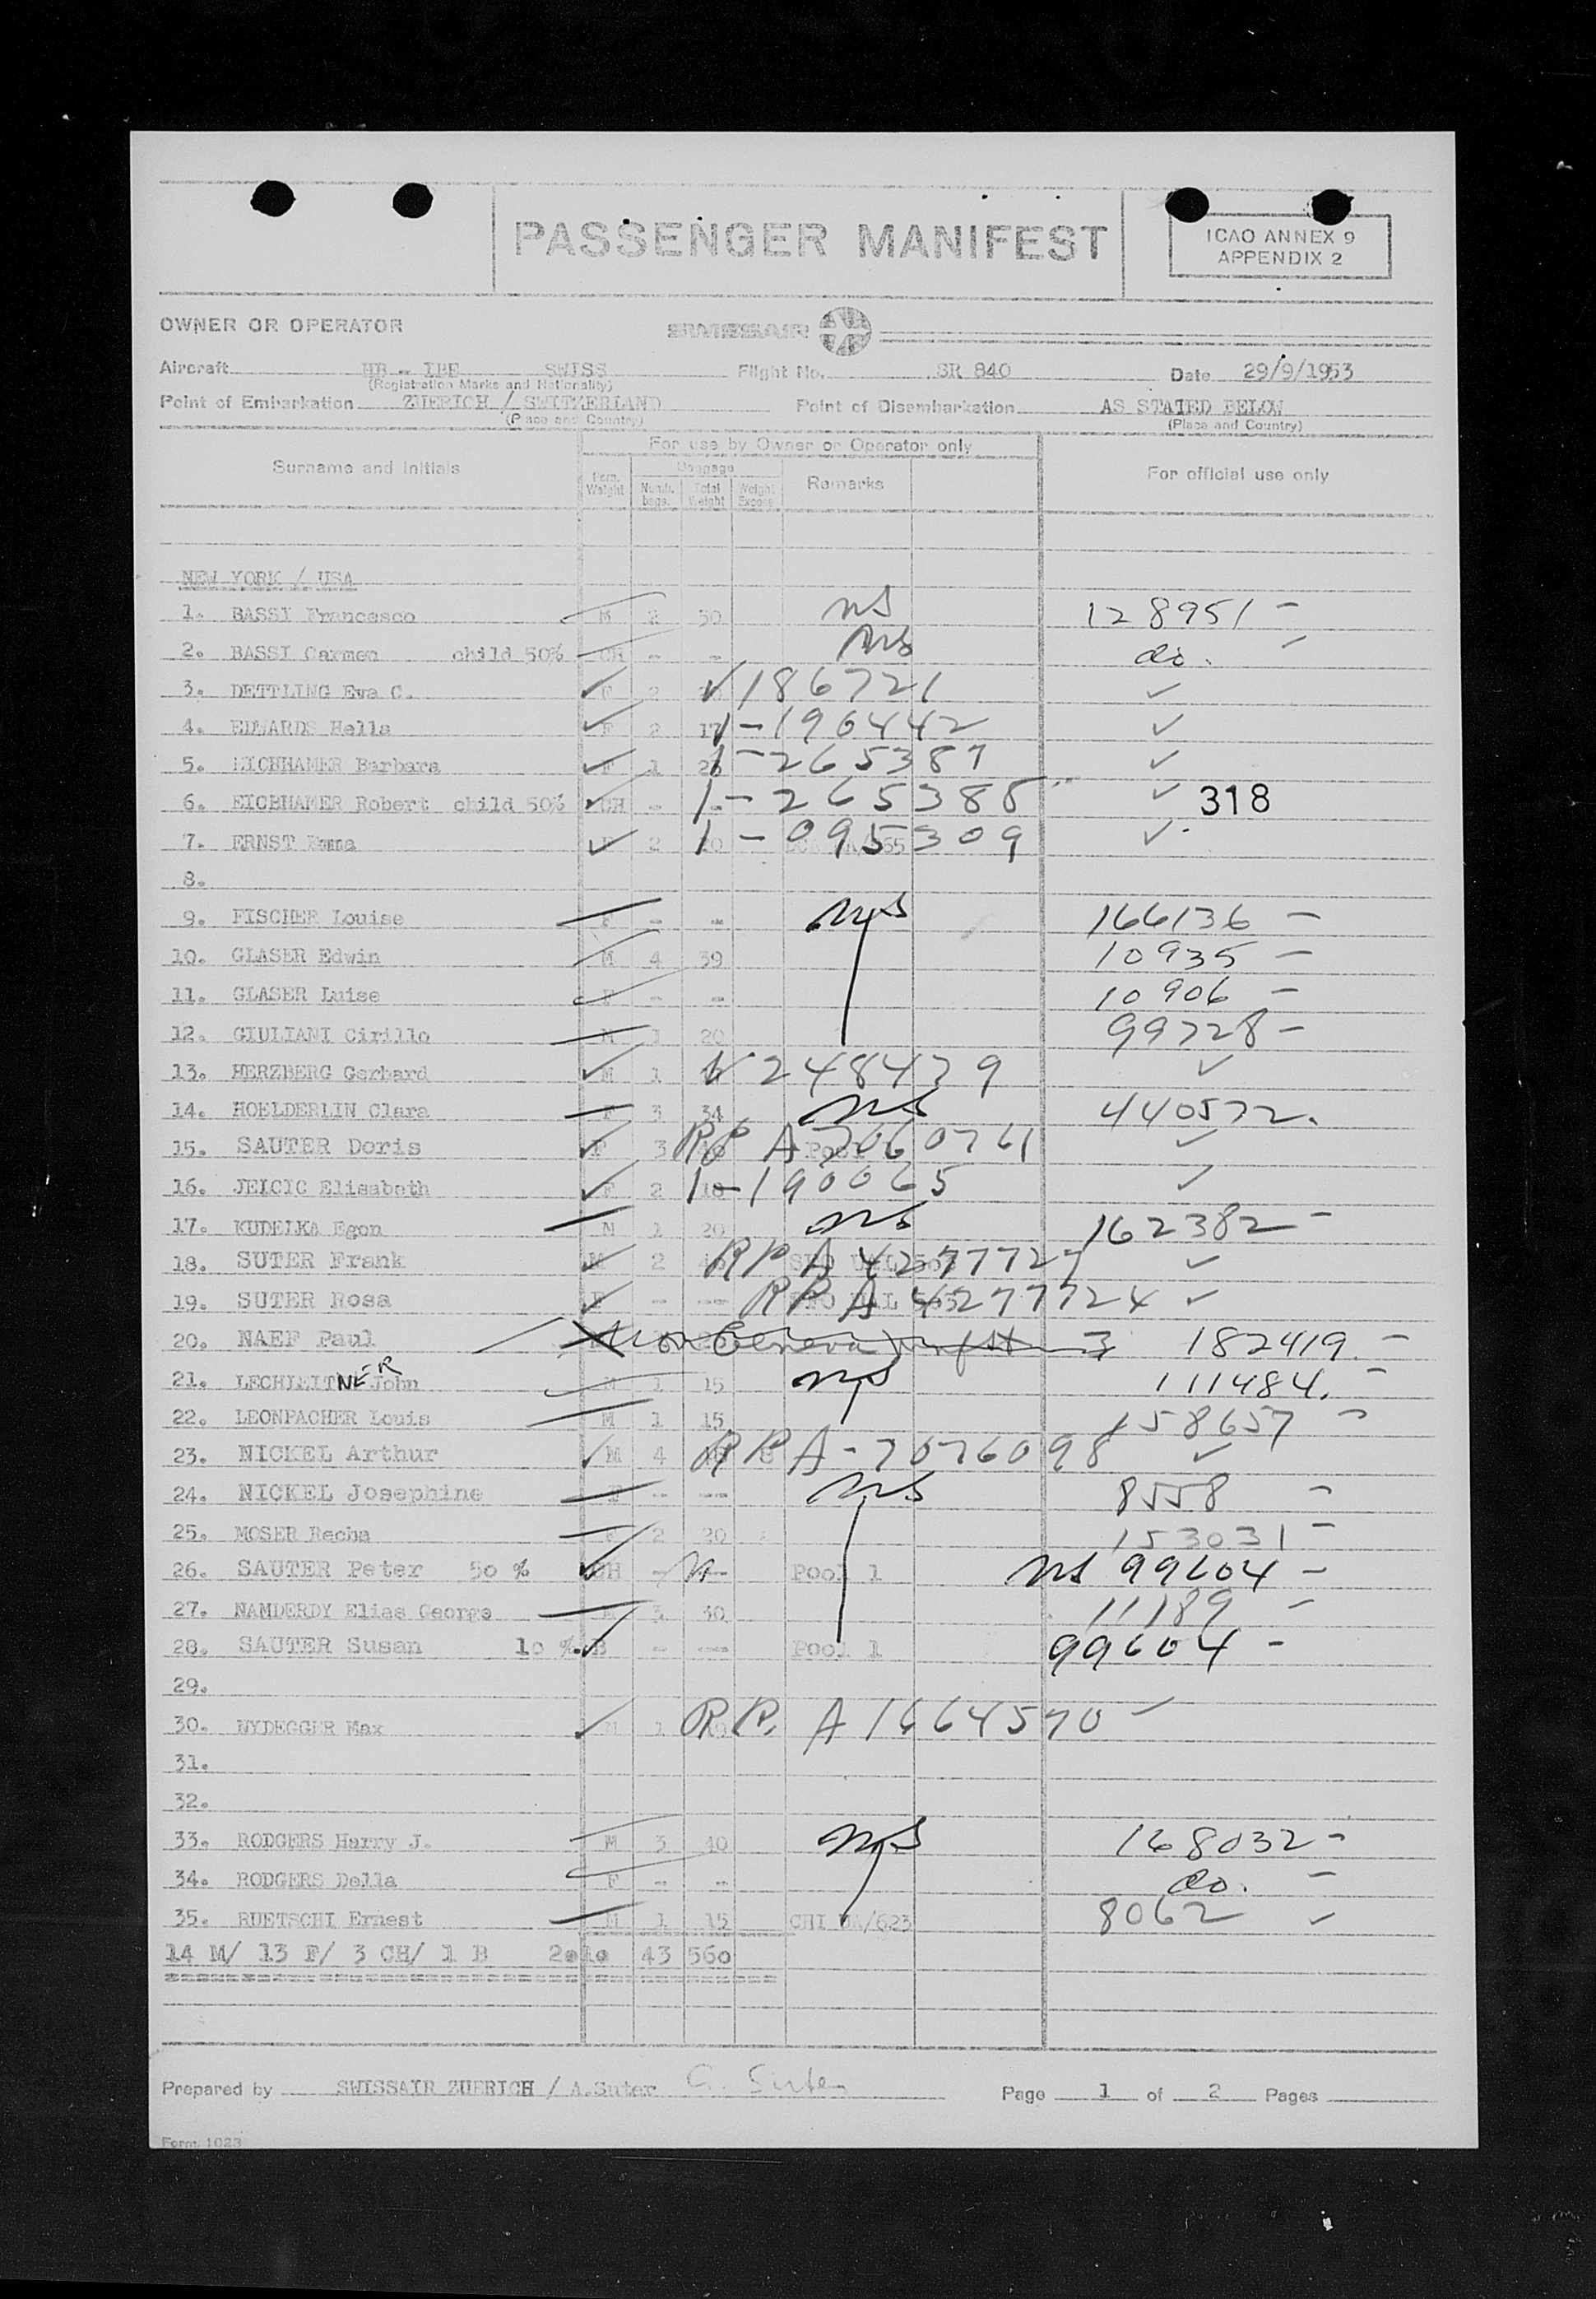 PASSENGER MANIFEST
ICAO ANNEX 9
APPENDIX 2
OWNER OR OPERATOR SWISSAIR
Aircraft HB - IBE SWISS Flight No. SR 840 Date 29/9/1953
(Registration Marks and Nationality)
Point of Embarkation ZUERICH / SWITZERLAND Point of Disembarkation AS STATED BELOW
(Place and Country) (Place and Country)
For use by Owner or Operator only
Surname and Initials Pers. Weight Baggage Numb. bags. Total Weight Weight Excess Remarks For official use only
NEW YORK / USA
1. BASSI Francesco M 2 30 ns 128951 -
2. BASSI Carmen child 50% CH - - ns do. -
3. DETTLING Eva C. ✓ F 2 ✓ 186721 ✓
4. EDWARDS Hella ✓ F 2 17 1-190442 ✓
5. EICHHAMER Barbara ✓ F 1 1-265387 ✓
6. EICHHAMER Robert child 50% ✓ CH - 1-265388 ✓ 318
7. ERNST Emma ✓ F 2 20 1-095309 ✓
8.
9. FISCHER Louise F - - ns 166136 -
10. GLASER Edwin M 4 39 10935 -
11. GLASER Luise F - - 10906 -
12. GIULIANI Cirillo M 1 20 99728 -
13. HERZBERG Gerhard ✓ M 1 248479 ✓
14. HOELDERLIN Clara F 3 34 ns 440572.
15. SAUTER Doris ✓ F 3 RP A 7060761 Pool ✓
16. JELCIC Elisabeth ✓ F 2 18 1-190065 ✓
17. KUDELKA Egon M 1 20 ns 162382 -
18. SUTER Frank ✓ M 2 RP A 4277727 ✓
19. SUTER Rosa ✓ F - -- RP A 4277724 ✓
20. NAEF Paul on Geneva 182419. -
21. LECHLEITNER John M 1 15 ns 111484. -
22. LEONPACHER Louis M 1 15 158657 -
23. NICKEL Arthur ✓ M 4 RP A-7076098 ✓
24. NICKEL Josephine F - -- ns 8558 -
25. MOSER Recha F 2 20 153031 -
26. SAUTER Peter 50 % ✓ CH - -- Pool 1 ns 99604 -
27. NAMDERDY Elias George M 3 30 11189 -
28. SAUTER Susan 10 %. ✓ B - -- Pool 1 99604 -
29.
30. NYDEGGER Max ✓ M 1 RP. A 1664570 ✓
31.
32.
33. RODGERS Harry J. M 3 40 ns 168032 -
34. RODGERS Della F - - do. -
35. RUETSCHI Ernest M 1 15 CHI UA/623 8062 ✓
14 M/ 13 F/ 3 CH/ 1 B 43 560
Prepared by SWISSAIR ZUERICH / A.Suter A. Suter Page 1 of 2 Pages
Form. 1023